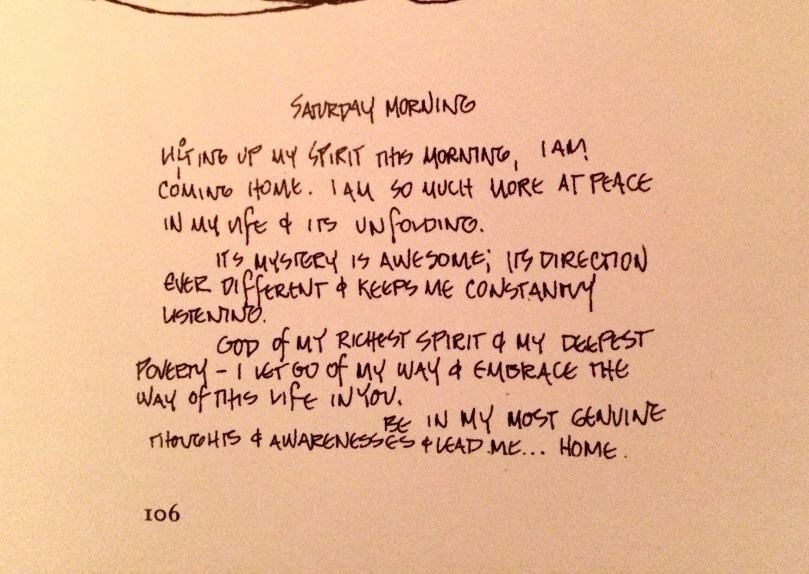 SATURDAY MORNING
LIFTING UP MY SPIRIT THIS MORNING, I AM
COMING HOME. I AM SO MUCH MORE AT PEACE
IN MY LIFE & ITS UNFOLDING.
ITS MYSTERY IS AWESOME; ITS DIRECTION
EVER DIFFERENT & KEEPS ME CONSTANTLY
LISTENING.
GOD OF MY RICHEST SPIRIT & MY DEEPEST
POVERTY - I LET GO OF MY WAY & EMBRACE THE
WAY OF THIS LIFE IN YOU.
BE IN MY MOST GENUINE
THOUGHTS & AWARENESSES & LEAD ME... HOME.
106